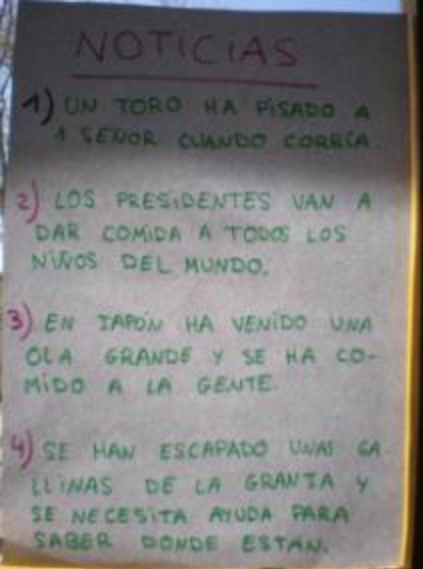 NOTICIAS
1) UN TORO HA PISADO A
1 SEÑOR CUANDO CORRÍA.
2) LOS PRESIDENTES VAN A
DAR COMIDA A TODOS LOS
NIÑOS DEL MUNDO.
3) EN JAPÓN HA VENIDO UNA
OLA GRANDE Y SE HA CO-
MIDO A LA GENTE.
4) SE HAN ESCAPADO UNAS GA
LLINAS DE LA GRANJA Y
SE NECESITA AYUDA PARA
SABER DONDE ESTAN.